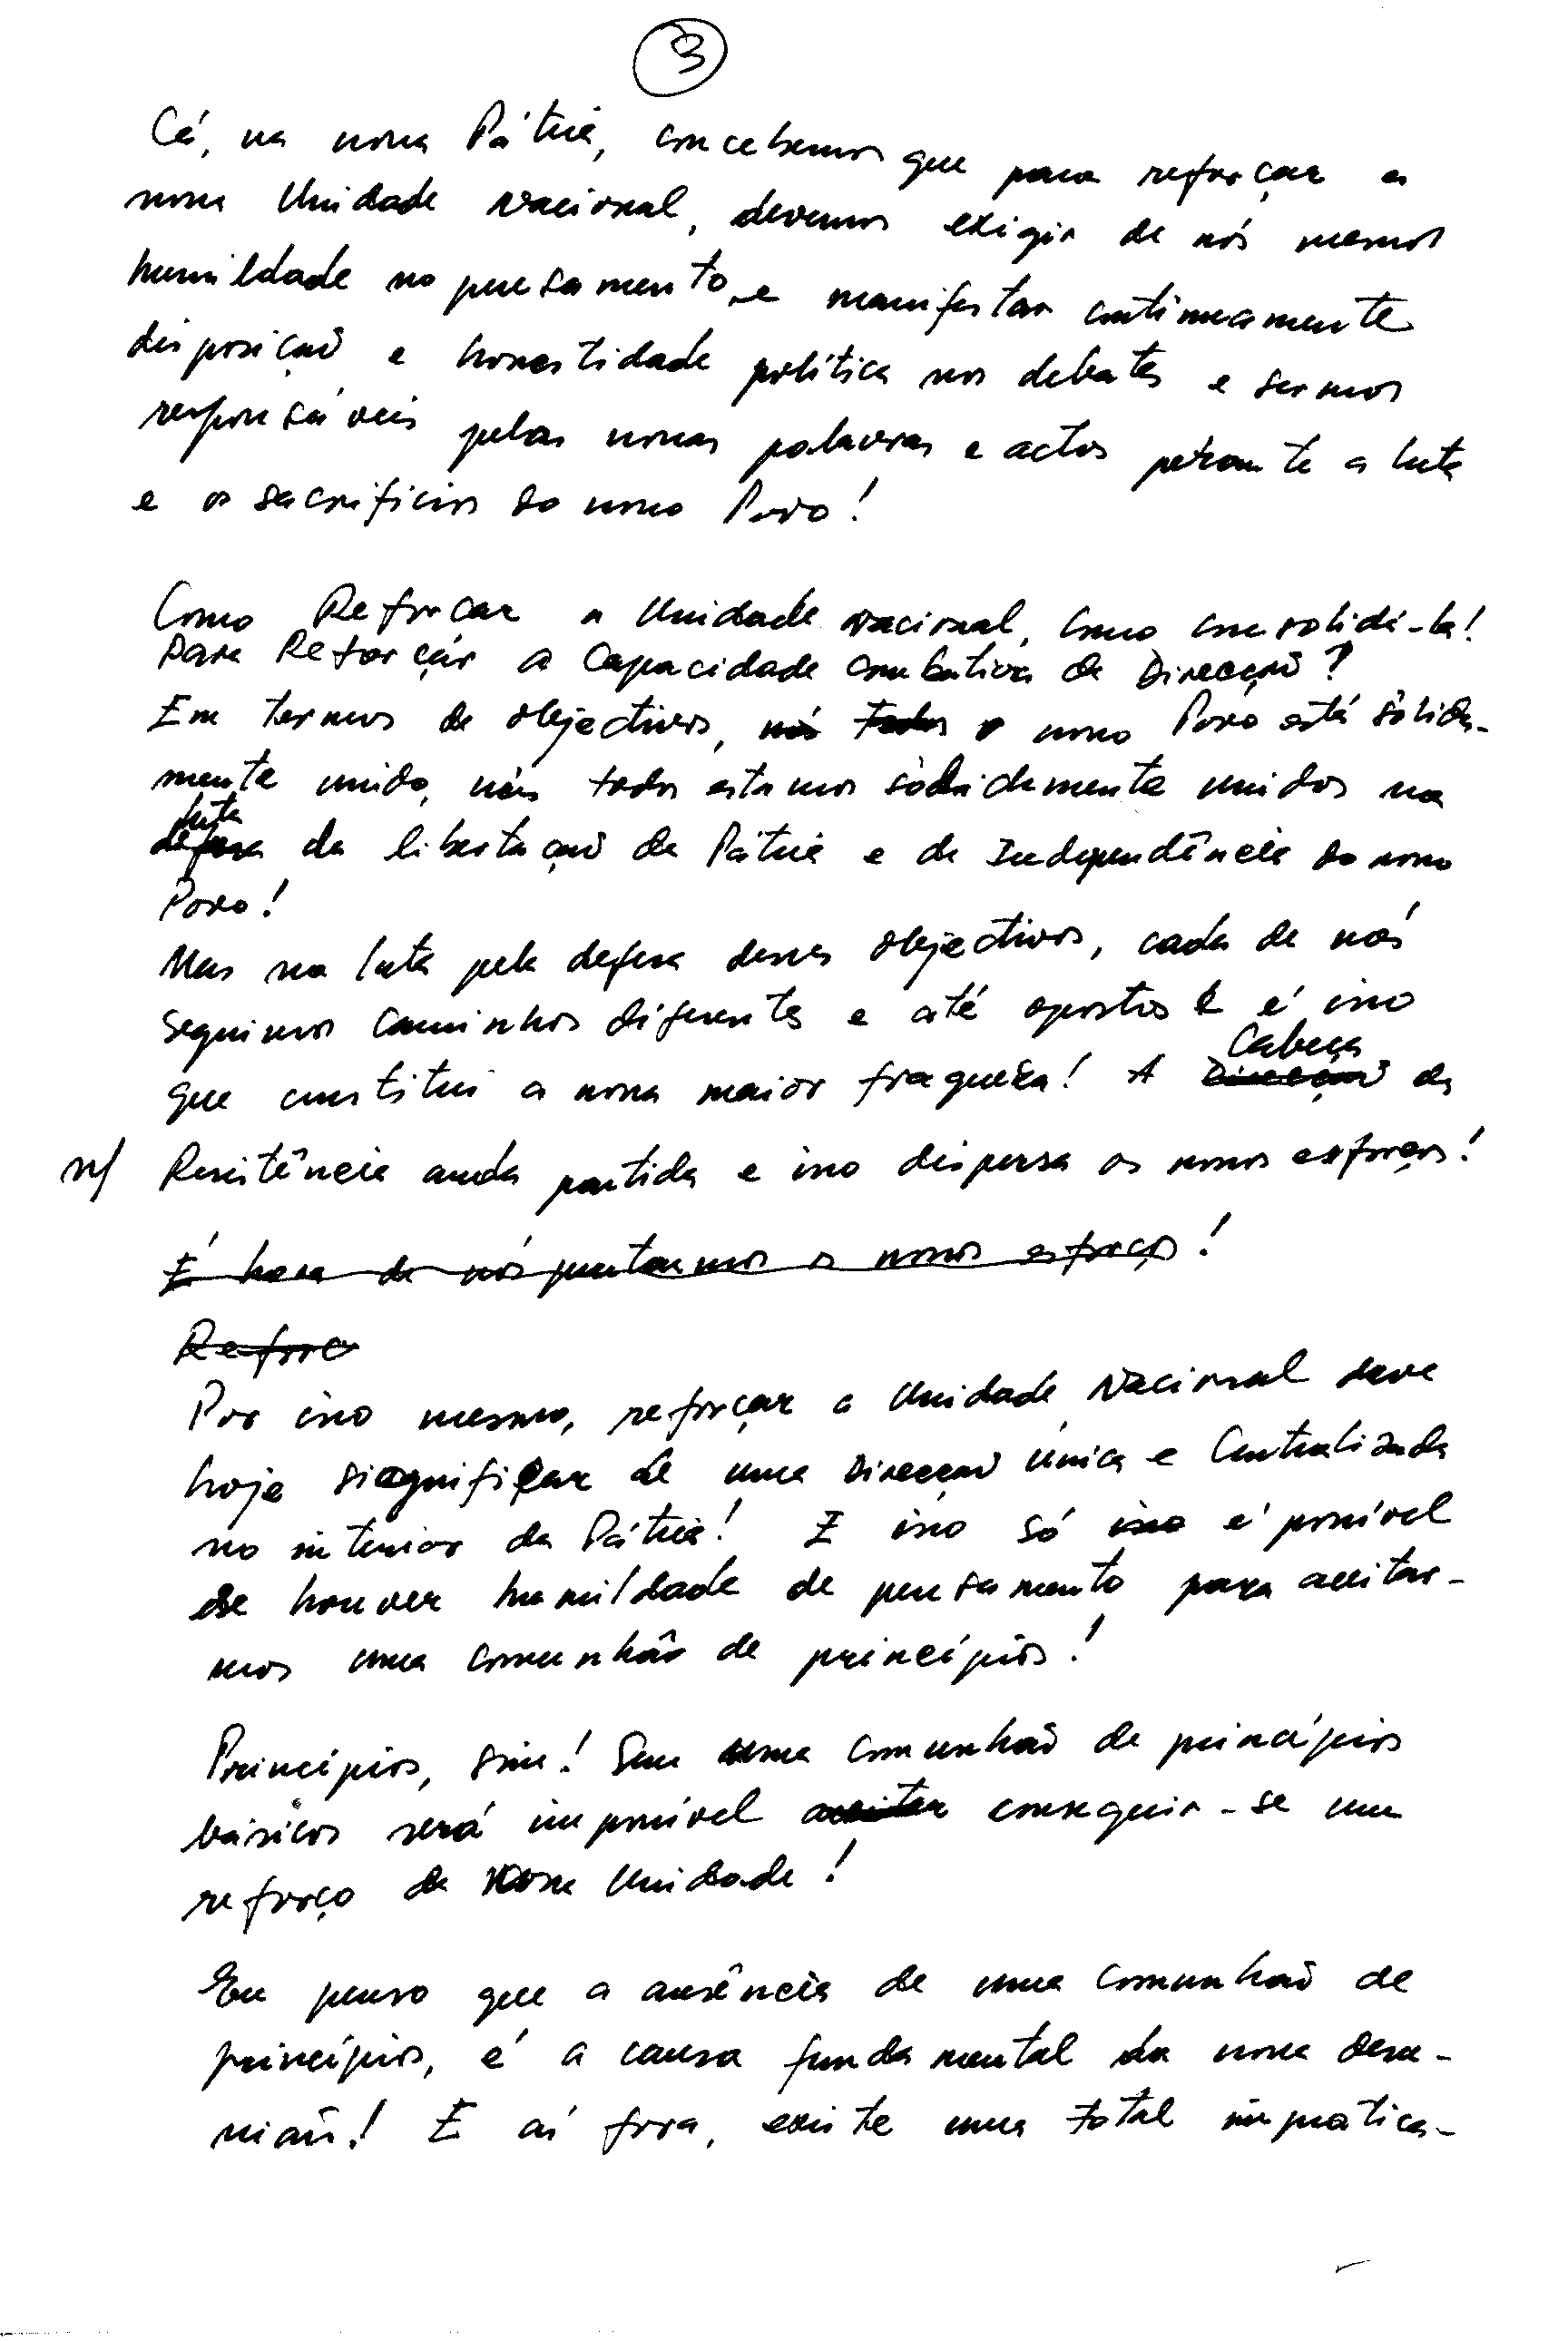 3
Cá, na nossa Pátria, concebemos que para reforçar a
nossa Unidade Nacional, devemos exigir de nós mesmos
humildade no pensamento e manifestar continuamente
disposição e honestidade política nos debates e sermos
responsáveis pelas nossas palavras e actos perante a luta
e os sacrifícios do nosso Povo!
Como Reforçar a Unidade Nacional, como consolidá-la!
Para Reforçár a Capacidade Combativa da Direcção?
Em termos de objectivos, nós todos o nosso Povo está sòlida-
mente unido, nós todos estamos sòlidamente unidos na
luta
defesa da libertação da Pátria e da Independência do nosso
Povo!
Mas na luta pela defesa desses objectivos, cada de nós
seguimos caminhos diferentes e até opostos e é isso
que constitui a nossa maior fraqueza! A Direcção da
Cabeça
n/ Resistência anda partida e isso dispersa os nossos esforços!
É hora de nós juntarmos os nossos esforços!
Reforc
Por isso mesmo, reforçar a Unidade Nacional deve
hoje significar de uma Direcção única e Centralizada
no interior da Pátria! E isso só isso é possível
se houver humildade de pensamento para aceitar-
mos uma comunhão de princípios!
Princípios, sim! Sem uma comunhão de princípios
básicos será impossível aceitar conseguir-se um
reforço da nossa Unidade!
Eu penso que a ausência de uma comunhão de
princípios, é a causa fundamental da nossa desu-
nião! E aí fora, existe uma total impratica-